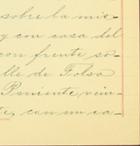 sobre la mis-
y con casa del
con frente so-
lle de Tolsa
Poniente vein-
te, con un ca-